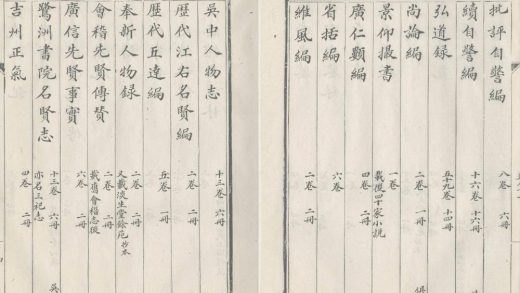 批評自警編 八卷
續自警編 十六卷 十六冊
弘道錄 五十九卷 十四冊
尚論編 二卷 一冊
景仰撮書 一卷 載後四十家小說
廣仁類編 四卷 二冊
省括編 六卷
維風編 二卷 二冊
吳中人物志 十三卷 六冊
歷代江右名賢編 二卷 二冊
歷代五達編 五卷 一冊
奉新人物錄 二卷 二冊 又載淡生堂餘苑抄本
會稽先賢傳贊 二卷 二冊 載舊會稽志後
廣信先賢事實 六卷 二冊
鷺洲書院名賢志 十三卷 六冊 亦名三祀志
吉州正氣 四卷 二冊
吳